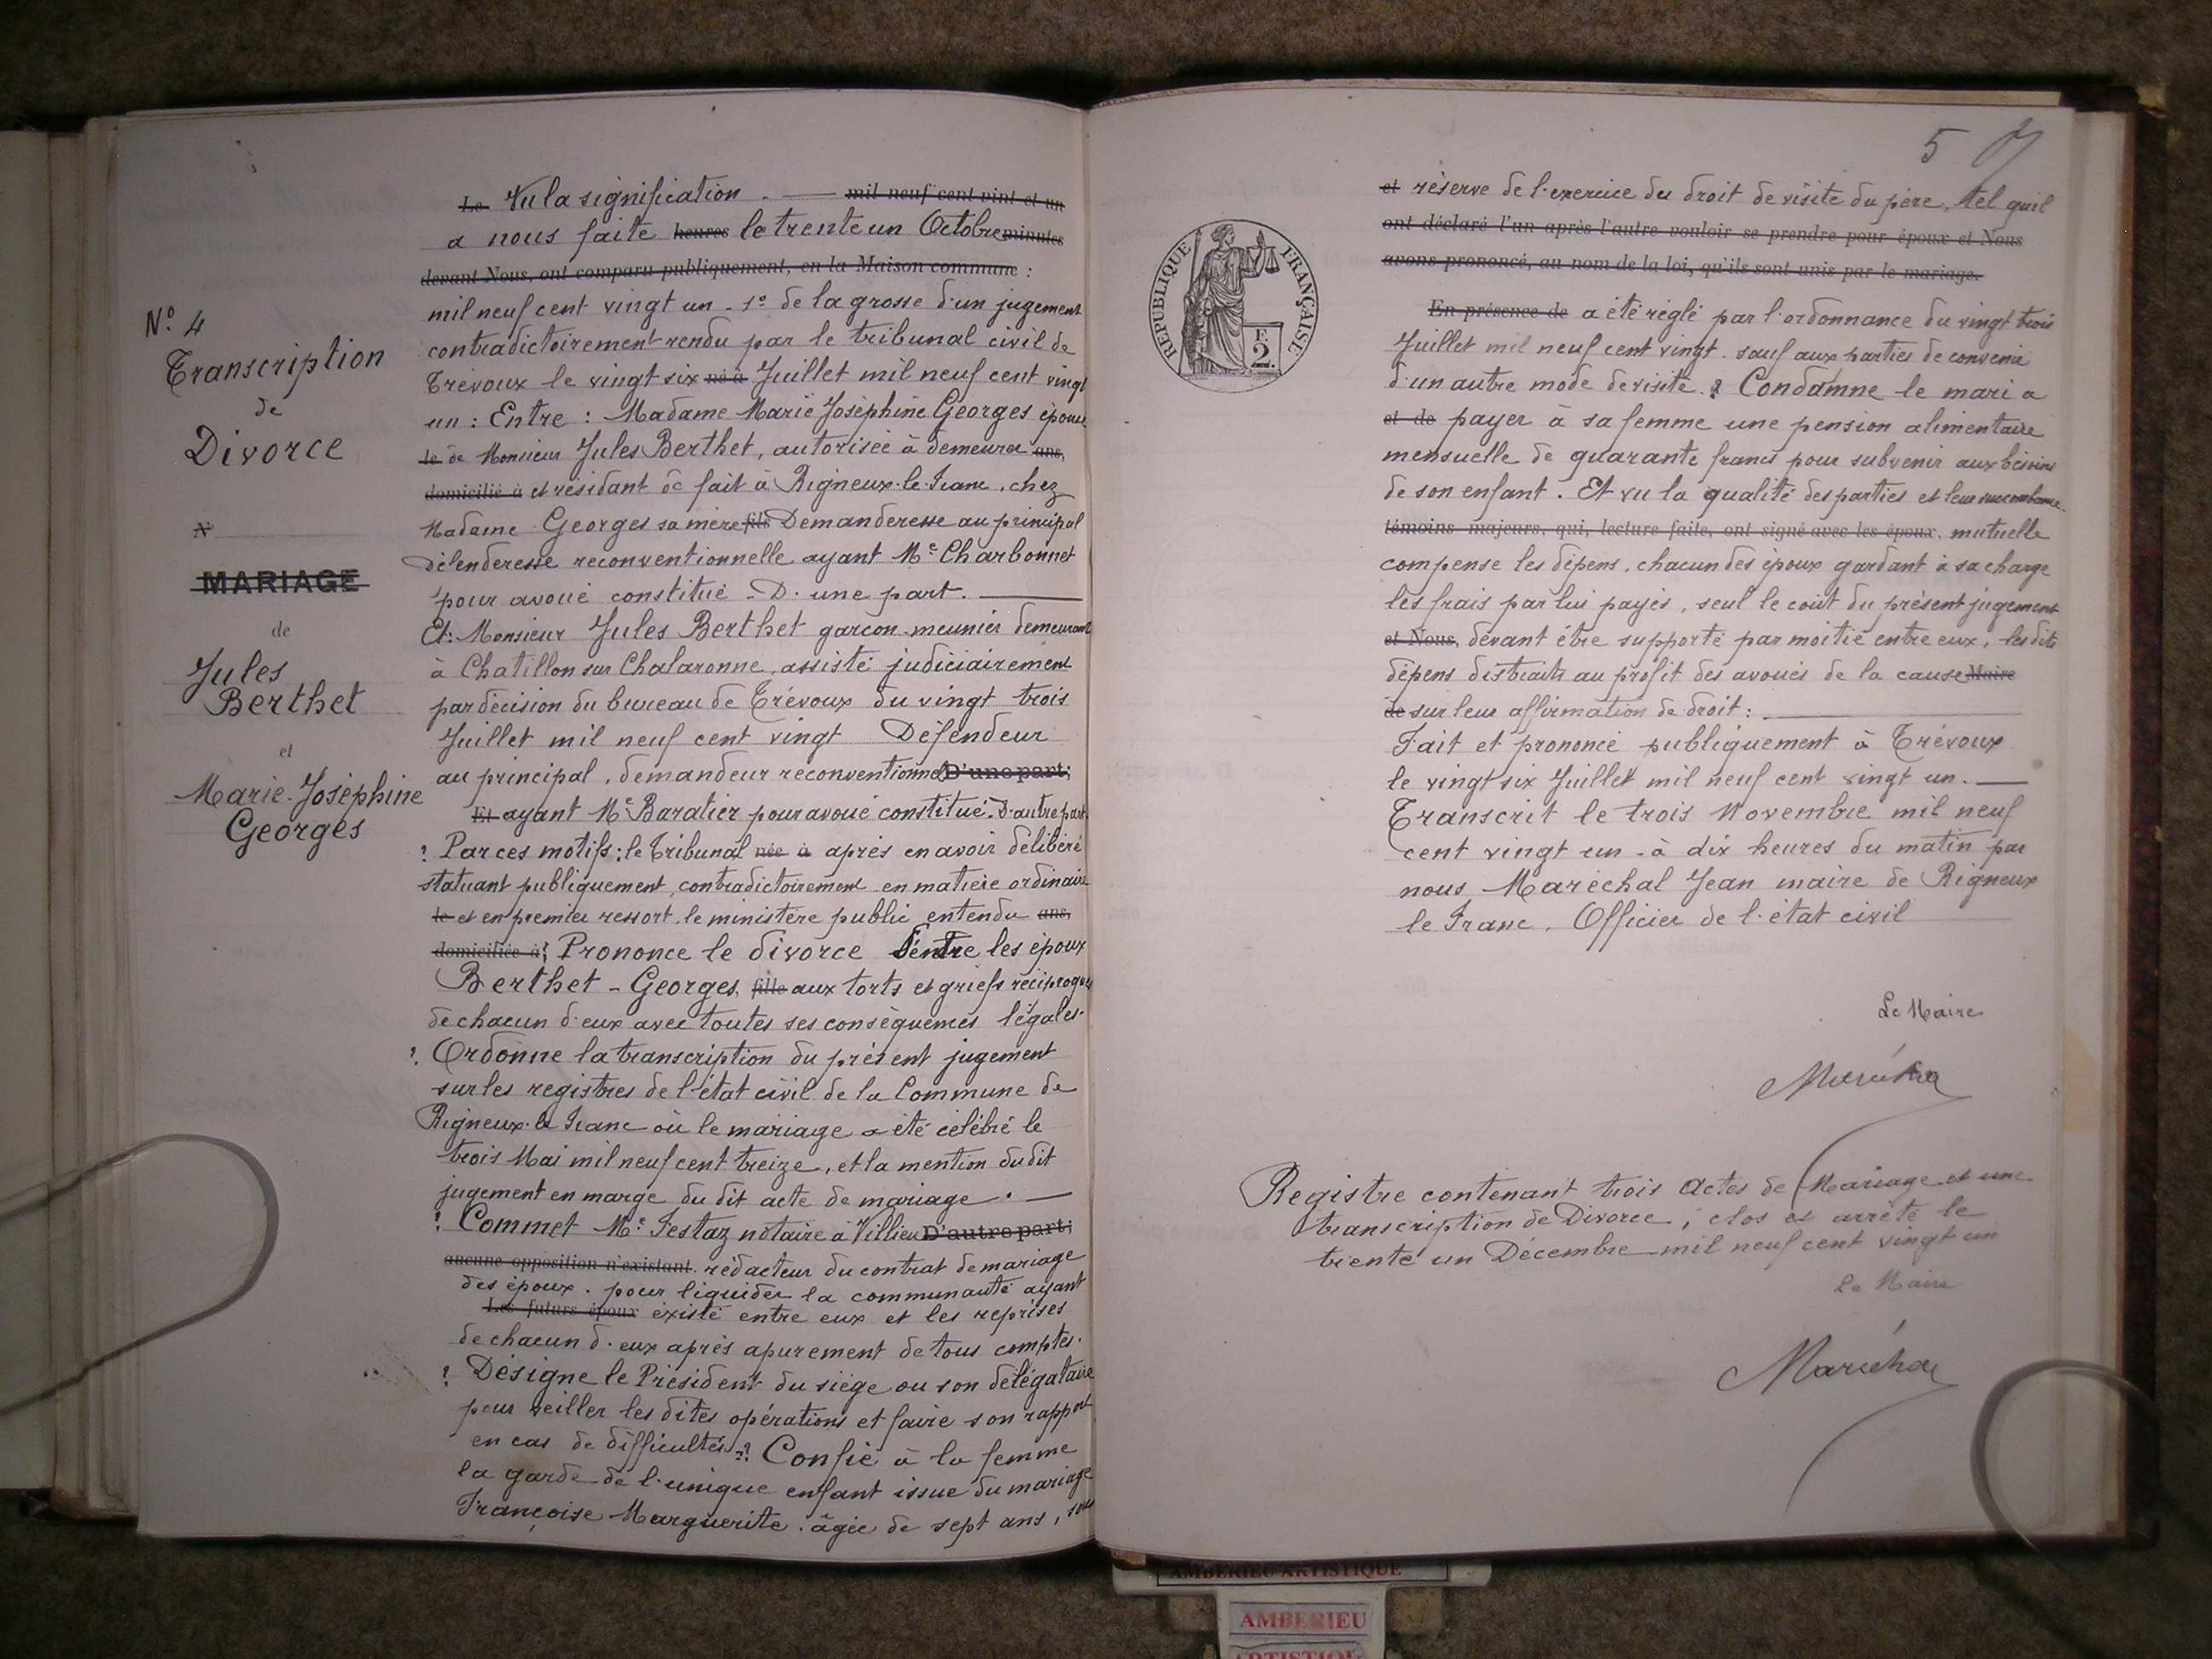 Nº 4
Transcription
de
Divorce
N
MARIAGE
de
Jules
Berthet
et
Marie-Joséphine
Georges
Le Vu la signification mil neuf cent vint et un
a nous faite heures le trente un Octobre minutes
devant Nous, ont comparu publiquement, en la Maison commune :
mil neuf cent vingt un - 1º de la grosse d'un jugement
contradictoirement rendu par le tribunal civil de
Trévoux le vingt six né à Juillet mil neuf cent vingt
un : Entre : Madame Marie Joséphine Georges épouse
le de Monsieur Jules Berthet, autorisée à demeurer ans,
domicilié à et résidant de fait à Rigneux-le-Franc, chez
Madame Georges sa mère fils Demanderesse au principal
défenderesse reconventionnelle ayant Me Charbonnet
pour avoué constitué - D. une part.
Et : Monsieur Jules Berthet garçon-meunier demeurant
à Chatillon sur Chalaronne, assisté judiciairement
par décision du bureau de Trévoux du vingt trois
Juillet mil neuf cent vingt Défendeur
au principal, demandeur reconventionnel D'une part;
Et ayant Me Baratier pour avoué constitué. D'autre part.
? Par ces motifs : le Tribunal née à après en avoir délibéré
statuant publiquement, contradictoirement en matière ordinaire
le et en premier ressort, le ministère public entendu ans,
domiciliée à ; Prononce le divorce d'entre les époux
Berthet - Georges, fille aux torts et griefs réciproques
de chacun d'eux avec toutes ses conséquences légales.
? Ordonne la transcription du présent jugement
sur les registres de l'état civil de la Commune de
Rigneux-le Franc où le mariage a été célébré le
trois Mai mil neuf cent treize, et la mention dudit
jugement en marge du dit acte de mariage .
? Commet Me Festaz notaire à Villieu D'autre part;
aucune opposition n'existant. rédacteur du contrat de mariage
des époux. pour liquider la communauté ayant
Les futurs époux existé entre eux et les reprises
de chacun d'eux après apurement de tous comptes.
? Désigne le Président du siège ou son délégataire
pour veiller les dites opérations et faire son rapport
en cas de difficultés -? Confie à la femme
la garde de l'unique enfant issue du mariage
Françoise Marguerite. âgée de sept ans, sous
5
REPUBLIQUE FRANÇAISE
F.
2.
et réserve de l'exercice du droit de visite du père, tel qu'il
ont déclaré l'un après l'autre vouloir se prendre pour époux et Nous
avons prononcé, au nom de la loi, qu'ils sont unis par le mariage.
En présence de a été réglé par l'ordonnance du vingt trois
Juillet mil neuf cent vingt. sauf aux parties de convenir
d'un autre mode de visite. ? Condamne le mari a
et de payer à sa femme une pension alimentaire
mensuelle de quarante francs pour subvenir aux besoins
de son enfant. Et vu la qualité des parties et leur succombance
témoins majeurs, qui, lecture faite, ont signé avec les époux. mutuelle
compense les dépens, chacun des époux gardant à sa charge
les frais par lui payés, seul le coût du présent jugement
et Nous, devant être supporté par moitié entre eux, les dits
dépens distraits au profit des avoués de la cause Maire
de sur leur affirmation de droit :
Fait et prononcé publiquement à Trévoux
le vingt six Juillet mil neuf cent vingt un.
Transcrit le trois Novembre mil neuf
cent vingt un - à dix heures du matin par
nous Maréchal Jean maire de Rigneux
le Franc. Officier de l'état civil
Le Maire
Maréchal
Registre contenant trois actes de Mariage et une
transcription de Divorce, clos et arrêté le
trente un Décembre mil neuf cent vingt un
Le Maire
Maréchal
AMBERIEU ARTISTIQUE
AMBERIEU
ARTISTIQUE